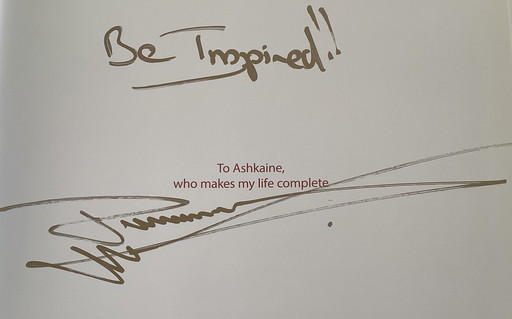 Be Inspired!!
To Ashkaine,
who makes my life complete